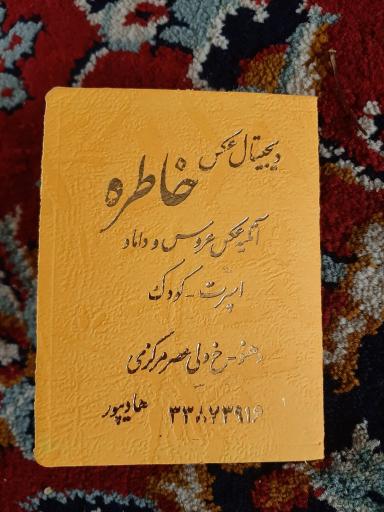 دیجیتال عکس
خاطره
آتلیه عکس عروس و داماد
اسپرت - کودک
خ ولی عصر مرکزی
هادیپور